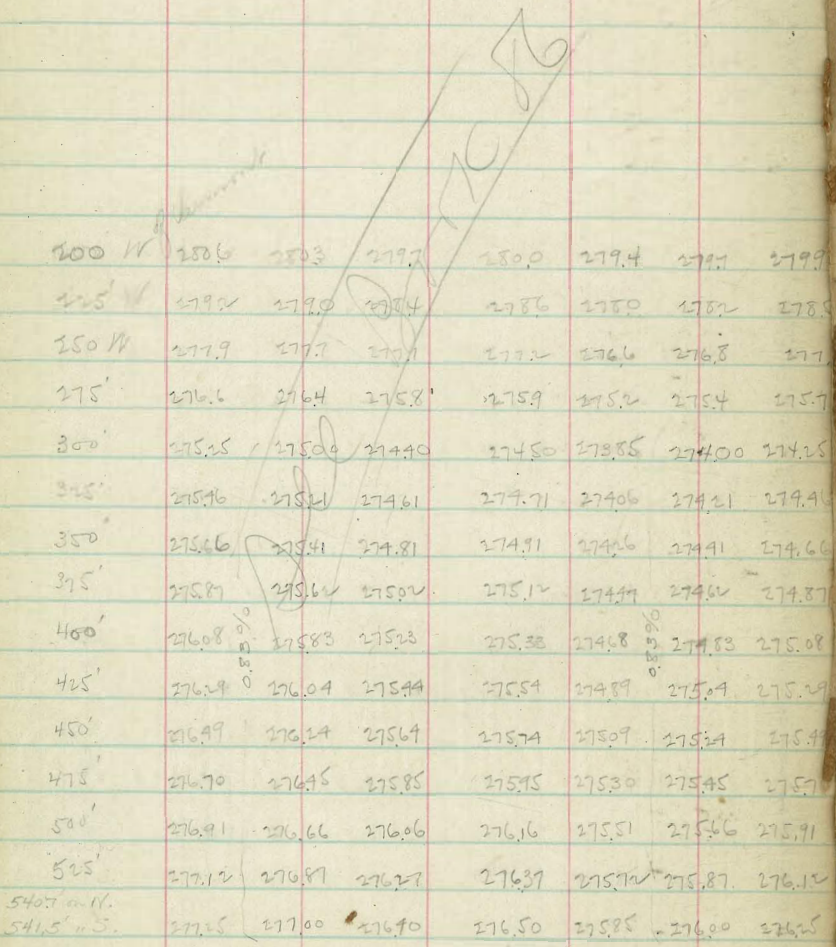 200 W 280.6 280.3 279.7 280.0 279.4 279.7 279.9
225' W 279.2 279.0 278.4 278.6 278.0 278.2 278.
250 W 277.9 277.7 277.2 276.6 276.8 277
275' 276.6 276.4 275.8 275.9 275.2 275.4 275.7
300' 275.25 275.00 274.40 274.50 273.85 274.00 274.25
325' 275.46 275.21 274.61 274.71 274.06 274.21 274.46
350' 275.66 275.41 274.81 274.91 274.26 274.41 274.66
375' 275.87 275.62 275.02 275.12 274.47 274.62 274.87
400' 276.08 0.83% 275.83 275.23 275.33 274.68 0.83% 274.83 275.08
425' 276.29 276.04 275.44 275.54 274.89 275.04 275.29
450' 276.49 276.24 275.64 275.74 275.09 275.24 275.49
475' 276.70 276.45 275.85 275.95 275.30 275.45 275.7
500' 276.91 276.66 276.06 276.16 275.51 275.66 275.91
525' 277.12 276.87 276.27 276.37 275.72 275.87 276.12
540.7 N.
541.5' " S. 277.25 277.00 276.40 276.50 275.85 276.00 276.25